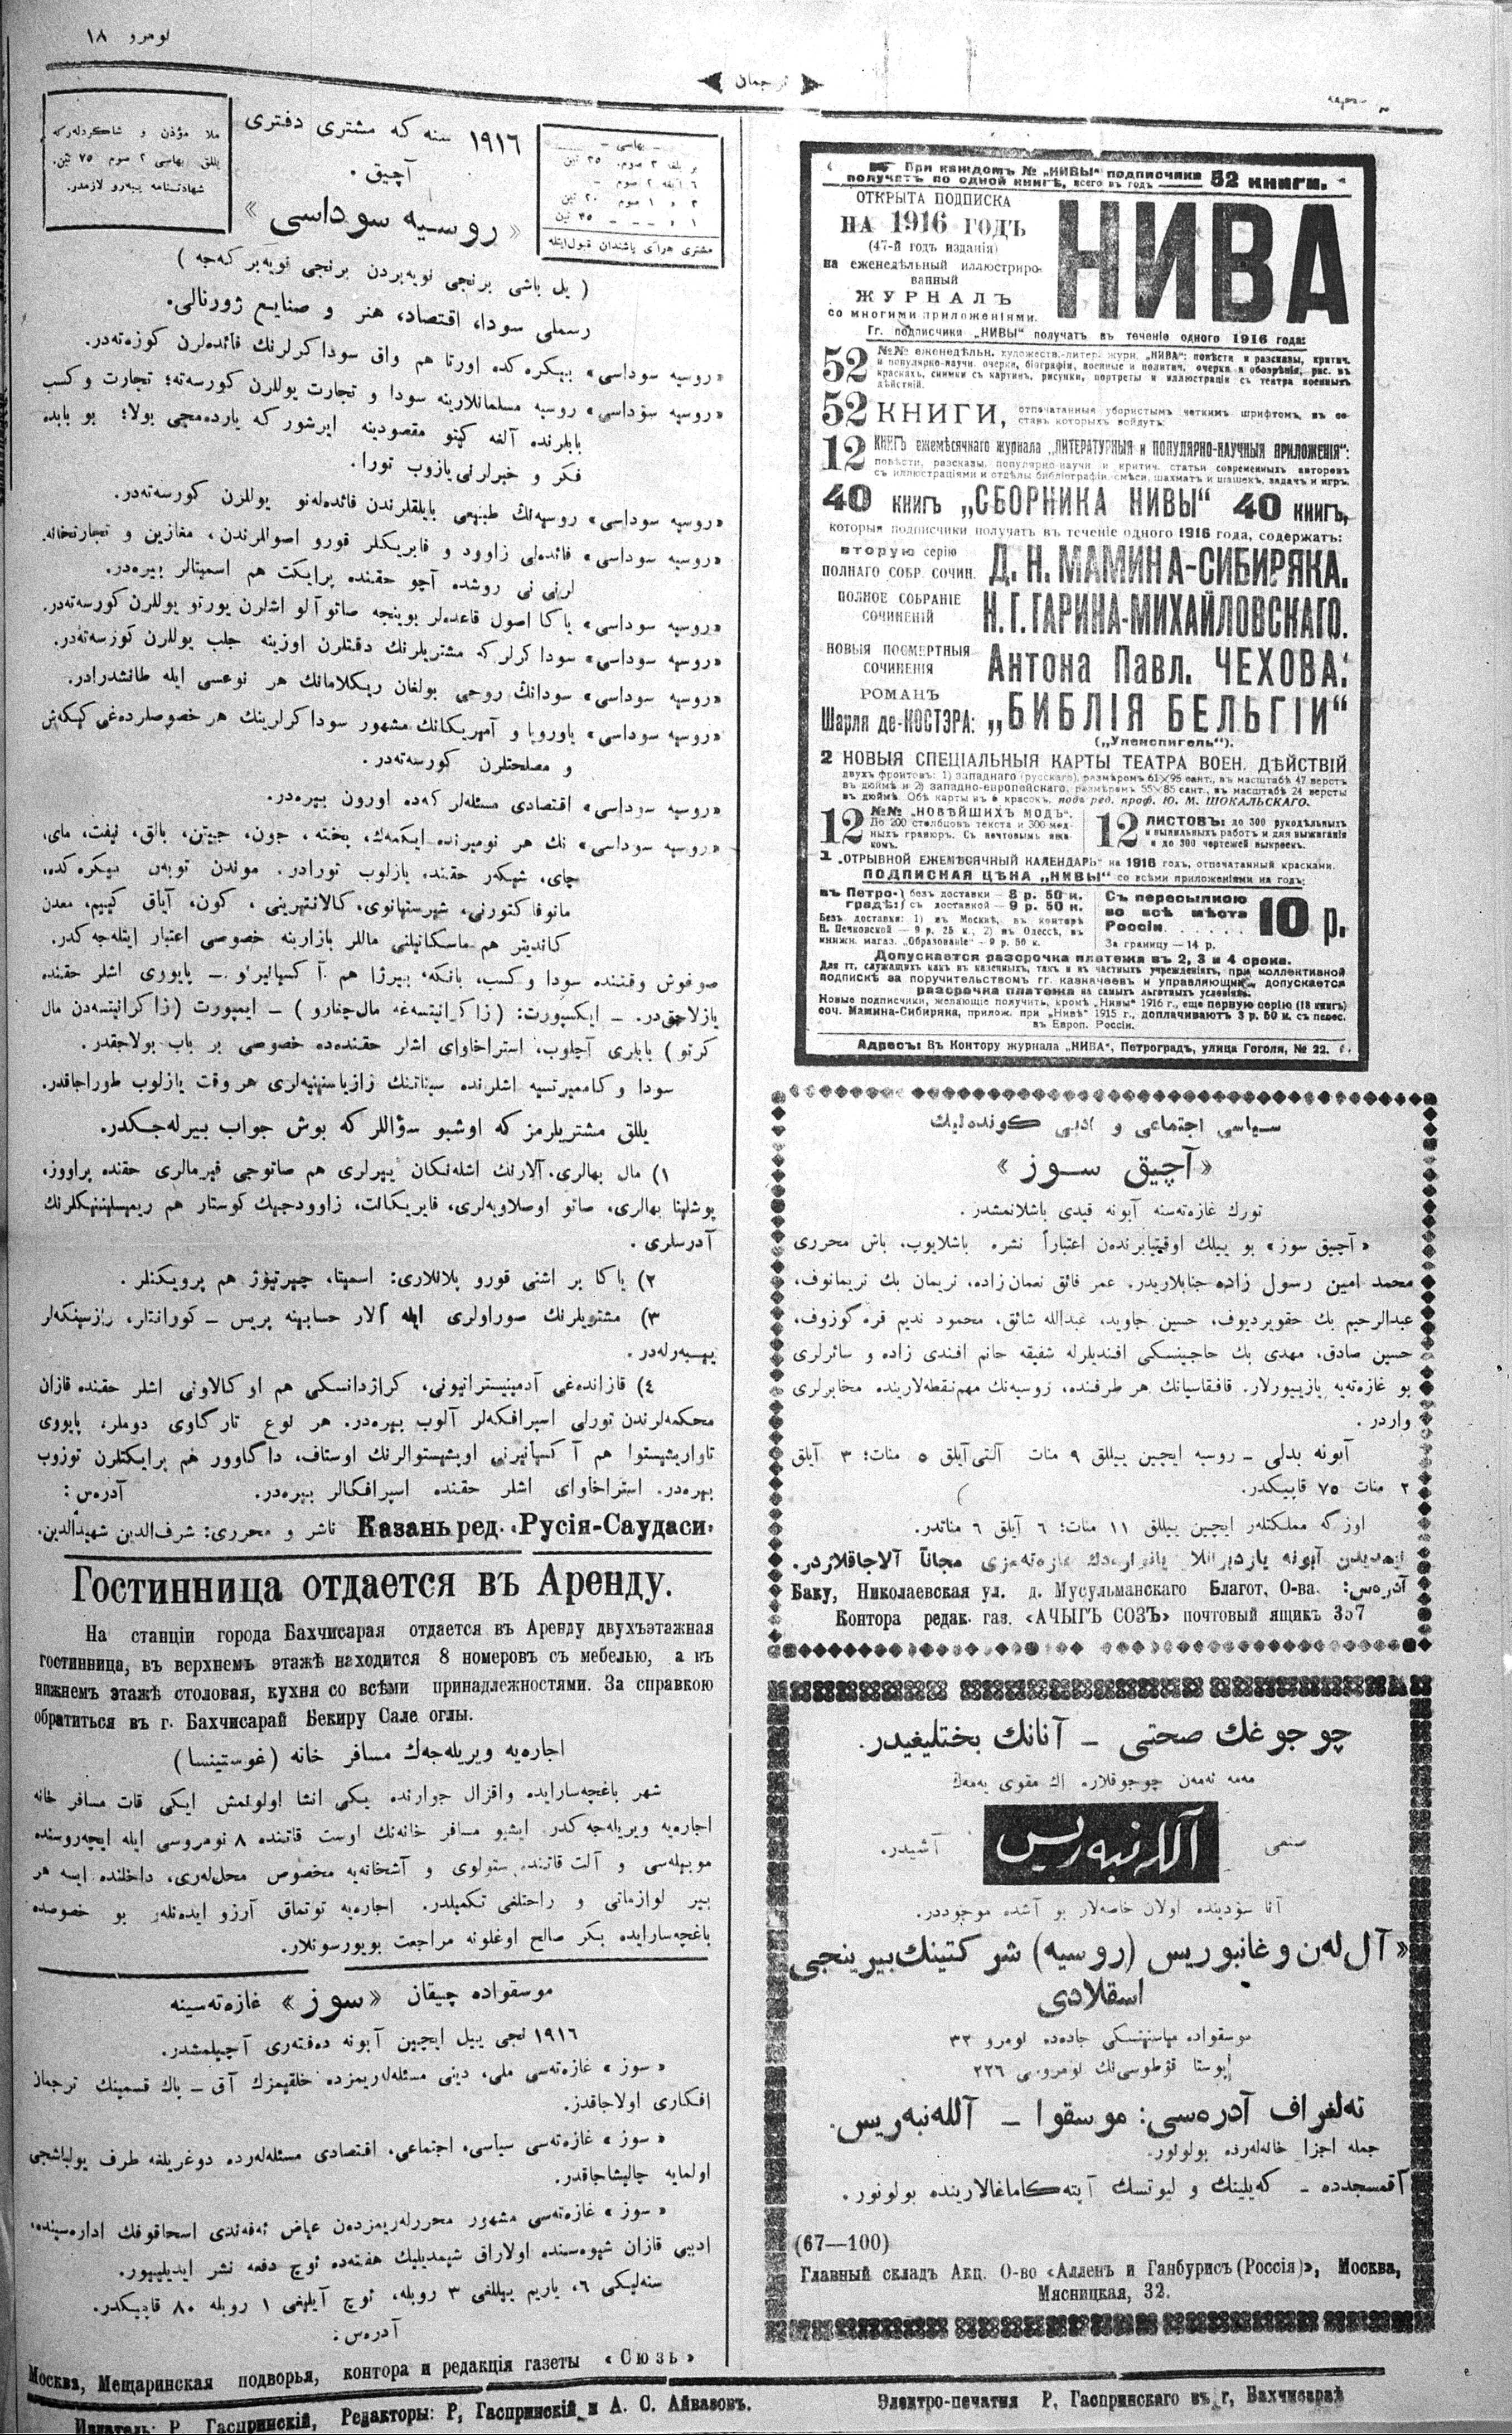 نومرو ١٨
ترجمان
ملا مؤذن و شاكردلەركە
يللق بهاسى ٢ صوم ٧٥ تين.
شهادتنامه يبەرو لازمدر.
١٩١٦ سنه كه مشترى دفترى
آچيق.
« روسيه سوداسى »
– بهاسى –
بر يلغه ٣ صوم. ٢٥ تين
٦ آيغه ٢ صوم –
٣ „ ١ صوم ٢٠ تين
١ „ – – ٣٥ تين
مشترى هرآى باشندان قبول ايتله
( يل باشى برنجى نويەبردن برنجى نويەبر كەجه )
رسملى سودا، اقتصاد، هنر و صنايع ژورنالى.
«روسيه سوداسى» بيكرەكده اورتا هم واق سوداكرلرنك فائدەلرن كوزەتەدر.
«روسيه سوداسى» روسيه مسلمانلارينه سودا و تجارت يوللرن كورسەته؛ تجارت و كسب
بابلرنده آلغه كيتو مقصودينه ايرشوركه ياردەمچى بولا؛ بو بابده
فكر و خبرلرنى يازوب تورا.
«روسيه سوداسى» روسيەنك طبيعى بايلقلرندن فائدەلەنو يوللرن كورسەتەدر.
«روسيه سوداسى» فائدەلى زاوود و فابريكلر قورو اصوللرندن، مغازين و تجارتخانه
لرنى نى روشده آچو حقنده پرايكت هم اسميتالر بيرەدر.
«روسيه سوداسى» ياكا اصول قاعدەلر بوينجه صاتو آلو اشلرن يورتو يوللرن كورسەتەدر.
«روسيه سوداسى» سوداكرلركه مشتريلرنك دقتلرن اوزينه جلب يوللرن كورسەتەدر.
«روسيه سوداسى» سودانك روحى بولغان ريكلامانك هر نوعسى ايله طانشدرادر.
«روسيه سوداسى» ياوروپا و آمريكانك مشهور سوداكرلرينك هر خصوصلردەغى كيكەش
و مصلحتلرن كورسەتەدر.
«روسيه سوداسى» اقتصادى مسئلەلركەده اورون بيرەدر.
«روسيه سوداسى» نك هر نوميرنده ايكمەك، پخته، جون، جيتن، بالق، نيفت، ماى،
چاى، شيكەر حقنده يازلوب تورادر. موندن توبەن بيكرەكده،
مانوفاكتورنى، شيرستيانوى، كالانتيرينى، كون، آياق كييم، معدن
كانديتر هم ماسكاتيلنى ماللر بازارينه خصوصى اعتبار ايتلەجەكدر.
صوغوش وقتنده سودا و كسب، بانكه، بيرژا هم آكسيانيرنو – پايووى اشلر حقنده
يازلاچقدر. – ايكسپورت: (زاكرانيتسەغه مال چغارو) – ايمپورت (زاكرانيتسەدن مال
كرتو) بابلرى آچلوب، استراخاواى اشلر حقندەده خصوصى بر باب بولاجقدر.
سودا و كاممیرتسيه اشلرنده سيناتنك زازياسنينيەلرى هر وقت يازلوب طوراجاقدر.
يللق مشتريلرمز كه اوشبو سؤاللر كه بوش جواب بيرلەجكدر.
١) مال بهالرى. آلارنك اشلەنكان ييرلرى هم صاتوجى فيرمالرى حقنده پراووز،
پوشلينا بهالرى، صاتو اوصلاويەلرى، فابريكانت، زاوودجيك كوستار هم ريميسلينيكلرنك
آدرسلرى.
٢) ياكا بر اشنى قورو پلانلارى: اسميتا، چيرتيوژ هم پرويكتلر.
٣) مشتريلرنك صوراولرى ايله آلار حسابينه پريس – كورانتلر، رازسينكەلر
يبيبەرلەدر.
٤) قازاندەغى آدمينيستراتيونى، كراژدانسكى هم اوكالاونى اشلر حقنده قازان
محكمەلرندن تورلى اسپرافكەلر آلوب بيرەدر. هر نوع تارگاوى دوملر، پايووى
تاواريشيستوا هم آكسيانيرنى اوبشيستوالرنك اوستاف، داگاوور هم پرايكتلرن توزوب
بيرەدر. استراخاواى اشلر حقنده اسپرافكالر بيرەدر. آدرەس:
Казань ред. «Русія-Саудаси» ناشر و محررى: شرف الدين شهيدالدين.
Гостинница отдается въ Аренду.
На станціи города Бахчисарая отдается въ Аренду двухъэтажная
гостинница, въ верхнемъ этажѣ находится 8 номеровъ съ мебелью, а въ
нижнемъ этажѣ столовая, кухня со всѣми принадлежностями. За справкою
обратиться въ г. Бахчисарай Бекиру Сале оглы.
اجارەيه ويريلەجەك مسافر خانه (غوستينسا)
شهر باغچەسارايده واقزال جوارنده يكى انشا اولونمش ايكى قات مسافر خانه
اجارەيه ويريلەجەكدر. ايشبو مسافر خانەنك اوست قاتنده ٨ نومروسى ايله ايچەروسنده
موبيلەسى و آلت قاتنده ستولوى و آشخانەيه مخصوص محل لەرى، داخلنده ايسه هر
بير لوازماتى و راحتلغى تكميلدر. اجارەيه توتماق آرزو ايدەنلەر بو خصوصده
باغچەسارايده بكر صالح اوغلونه مراجعت بويورسونلار.
موسقواده چيقان «سوز» غازەتەسينه
١٩١٦ نجى ييل ايچين آبونه دەفتەرى آچيلمشدر.
« سوز » غازەتەسى ملى، دينى مسئلەلەريمزده خلقيمزك آق – پاك قسمينك ترجمان
افكارى اولاجاقدر.
« سوز » غازەتەسى سياسى، اجتماعى، اقتصادى مسئلەلەرده دوغريلغه طرف يولباشجى
اولمايه چاليشاجاقدر.
« سوز » غازەتەسى مشهور محررلەريمزدەن عياض ئەفەندى اسحاقوفك ادارەسينده،
ادبى قازان شيوەسنده اولاراق شيمديليك هفتەده ئوچ دفعه نشر ايديلييور.
سنەليكى ٦، ياريم ييللغى ٣ روبله، ئوچ آيلغى ١ روبله ٨٠ قاپيكدر.
آدرەس:
Москва, Мещаринская подворья, контора и редакція газеты «Сюзь»
При каждомъ № „НИВЫ“ подписчики
получатъ по одной книгѣ, всего въ годъ — 52 книги.
ОТКРЫТА ПОДПИСКА
НА 1916 ГОДЪ
(47-й годъ изданія)
на еженедѣльный иллюстриро-
ванный
ЖУРНАЛЪ
со многими приложеніями.
НИВА
Гг. подписчики „НИВЫ“ получатъ въ теченіе одного 1916 года:
52 №№ еженедѣльн. художеств.-литер. журн. „НИВА“: повѣсти и разсказы, критич.
и популярно-научн. очерки, біографіи, военные и политич. очерки и обозрѣнія, рис. въ
краскахъ, снимки съ картинъ, рисунки, портреты и иллюстраціи съ театра военныхъ
дѣйствій.
52 КНИГИ, отпечатанныя убористымъ четкимъ шрифтомъ, въ со-
ставъ которыхъ войдутъ:
12 КНИГЪ ежемѣсячнаго журнала „ЛИТЕРАТУРНЫЯ и ПОПУЛЯРНО-НАУЧНЫЯ ПРИЛОЖЕНІЯ“:
повѣсти, разсказы, популярно-научн. и критич. статьи современныхъ авторовъ
съ иллюстраціями и отдѣлы библіографіи, смѣси, шахматъ и шашекъ, задачъ и игръ.
40 книгъ „СБОРНИКА НИВЫ“ 40 книгъ,
которыя подписчики получатъ въ теченіе одного 1916 года, содержатъ:
вторую серію
полнаго собр. сочин. Д. Н. МАМИНА-СИБИРЯКА.
ПОЛНОЕ СОБРАНІЕ
СОЧИНЕНІЙ Н. Г. ГАРИНА-МИХАЙЛОВСКАГО.
НОВЫЯ ПОСМЕРТНЫЯ
СОЧИНЕНІЯ Антона Павл. ЧЕХОВА:
РОМАНЪ
Шарля де-КОСТЭРА: „БИБЛІЯ БЕЛЬГІИ“
(„Уленспигель“).
2 НОВЫЯ СПЕЦІАЛЬНЫЯ КАРТЫ ТЕАТРА ВОЕН. ДѢЙСТВІЙ
двухъ фронтовъ: 1) западнаго (русскаго), размѣромъ 61×95 сант., въ масштабѣ 47 верстъ
въ дюймѣ и 2) западно-европейскаго, размѣромъ 55×85 сант., въ масштабѣ 24 версты
въ дюймѣ. Обѣ карты въ 6 красокъ, подъ ред. проф. Ю. М. ШОКАЛЬСКАГО.
12 №№ „НОВѢЙШИХЪ МОДЪ“.
До 200 столбцовъ текста и 300 мод-
ныхъ гравюръ. Съ почтовымъ ящи-
комъ.
12 ЛИСТОВЪ: до 300 рукодѣльныхъ
и выпильныхъ работъ и для выжиганія
и до 300 чертежей выкроекъ.
1 „ОТРЫВНОЙ ЕЖЕМѢСЯЧНЫЙ КАЛЕНДАРЬ“ на 1916 годъ, отпечатанный красками.
ПОДПИСНАЯ ЦѢНА „НИВЫ“ со всѣми приложеніями на годъ:
въ Петро- } безъ доставки – 8 р. 50 к.
градѣ: } съ доставкой – 9 р. 50 к.
Безъ доставки: 1) въ Москвѣ, въ конторѣ
Н. Печковской – 9 р. 25 к.; 2) въ Одессѣ, въ
книжн. магаз. „Образованіе“ – 9 р. 50 к.
Съ пересылкою
во всѣ мѣста
Россіи. . . . . . 10 р.
За границу – 14 р.
Допускается разсрочка платежа въ 2, 3 и 4 срока.
Для гг. служащихъ какъ въ казенныхъ, такъ и въ частныхъ учрежденіяхъ, при коллективной
подпискѣ за поручительствомъ гг. казначеевъ и управляющихъ, допускается
разсрочка платежа на самыхъ льготныхъ условіяхъ.
Новые подписчики, желающіе получить, кромѣ „Нивы“ 1916 г., еще первую серію (18 книгъ)
соч. Мамина-Сибиряка, прилож. при „Нивѣ“ 1915 г., доплачиваютъ 3 р. 50 к. съ перес.
въ Европ. Россіи.
Адресъ: Въ Контору журнала „НИВА“, Петроградъ, улица Гоголя, № 22.
سياسى اجتماعى و ادبى كوندەليك
« آچيق سوز »
تورك غازەتەسنه آبونه قيدى باشلانمشدر.
«آچيق سوز» بو ييلك اوقتيابرندەن اعتباراً نشره باشلايوب، باش محررى
محمد امين رسول زاده جنابلاريدر. عمر فائق نعمان زاده، نريمان بك نريمانوف،
عبدالرحيم بك حقويرديوف، حسين جاويد، عبدالله شائق، محمود نديم قره كوزوف،
حسين صادق، مهدى بك حاجينسكى افنديلرله شفيقه خانم افندى زاده و سائرلرى
بو غازەتەيه يازييورلار. قافقاسيانك هر طرفنده، روسيەنك مهم نقطەلارينده مخابرلرى
واردر.
آبونه بدلى – روسيه ايچين ييللق ٩ منات آلتى آيلق ٥ منات؛ ٣ آيلق
٢ منات ٧٥ قاپيكدر.
اوزگه مملكتلەر ايچين ييللق ١١ منات؛ ٦ آيلق ٦ مناتدر.
شمديدن آبونه يازديرانلار يانوارەدك غازەتەمزى مجاناً آلاجاقلاردر.
آدرەس: Баку, Николаевская ул. д. Мусульманскаго Благот. О-ва.
Контора редак. газ. «АЧЫГЪ СОЗЪ» почтовый ящикъ 357
چوجوغك صحتى – آنانك بختليغيدر.
مەمه ئەمەن چوجوقلاره اك مقوى يەمەك
صنعى آللەنبەريس آشيدر.
آنا سودينده اولان خاصەلار بو آشده موجوددر.
«آل لەن و غانبوريس (روسيه) شركتينك بيرينجى
اسقلادى
موسقواده مياسنيتسكى جادەده نومرو ٣٢
پوستا قوطوسى نك نومروسى ٢٢٦
تەلغراف آدرەسى: موسقوا – آللەنبەريس.
جمله اجزا خانەلەرده بولونور.
آقمسجدده – كەيلينك و ليوتسك آپتەكاماغالارينده بولونور.
(67—100)
Главный складъ Акц. О-во «Алленъ и Ганбурисъ (Россія)», Москва,
Мясницкая, 32.
Издатель: Р. Гаспринскій, Редакторы: Р, Гаспринскій и А. С. Айвазовъ.
Электро-печатня Р, Гаспринскаго въ г, Бахчисараѣ